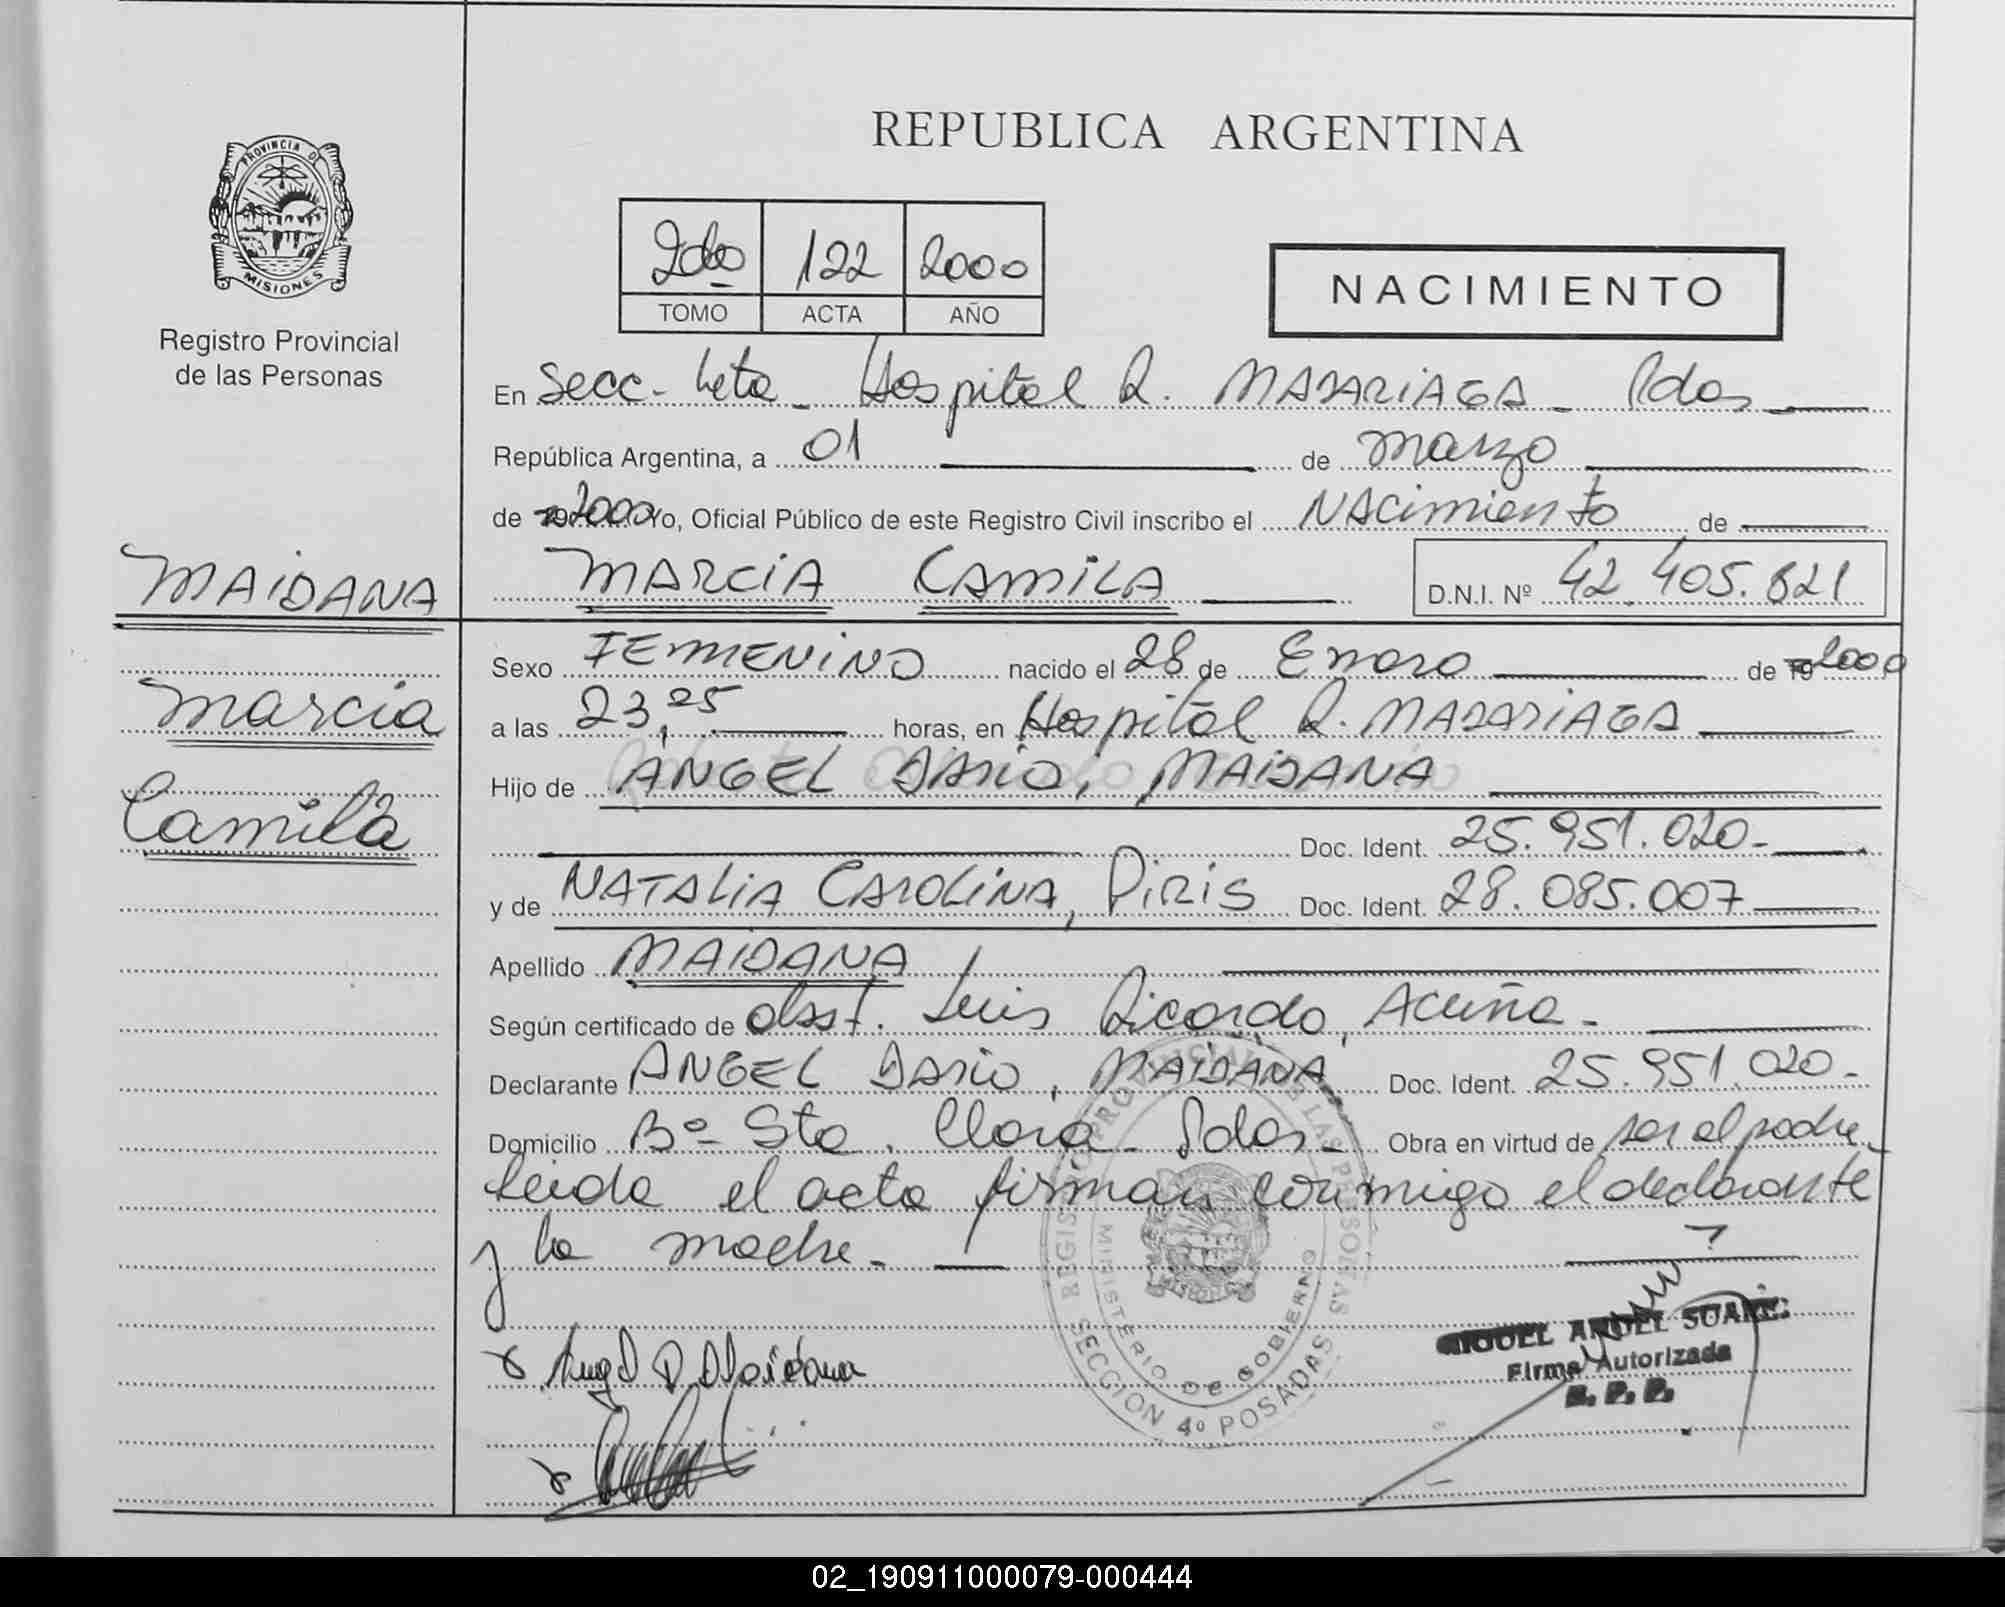 REPUBLICA ARGENTINA
PROVINCIA DE
MISIONES
Registro Provincial
de las Personas
2do 122 2000
TOMO ACTA AÑO
NACIMIENTO
En Secc- 4ta - Hospital R. MADARIAGA - Pdas
República Argentina, a 01 de marzo
de 2000 Yo, Oficial Público de este Registro Civil inscribo el NAcimiento de
MAIDANA
MARCIA CAMILA D.N.I. Nº 42.405.821
Sexo FEMENINO nacido el 28 de Enero de 19 2000
Marcia
a las 23,25 horas, en Hospital R. MADARIAGA
Hijo de ANGEL DARIO, MAIDANA
Camila
Doc. Ident. 25.951.020-
y de NATALIA CAROLINA, PIRIS Doc. Ident. 28.085.007
Apellido MAIDANA
Según certificado de obst. Luis Ricardo, Acuña-
Declarante ANGEL DARIO, MAIDANA Doc. Ident. 25.951.020-
Domicilio Bº Sta. Clara - Pdas - Obra en virtud de ser el padre-
leida el acta firman conmigo el declarante
y la madre-
REGISTRO PROVINCIAL DE LAS PERSONAS
MINISTERIO DE GOBIERNO
SECCION 4º POSADAS
Angel D. Maidana
MIGUEL ANGEL SUAREZ
Firma Autorizada
R. P. P.
02_190911000079-000444